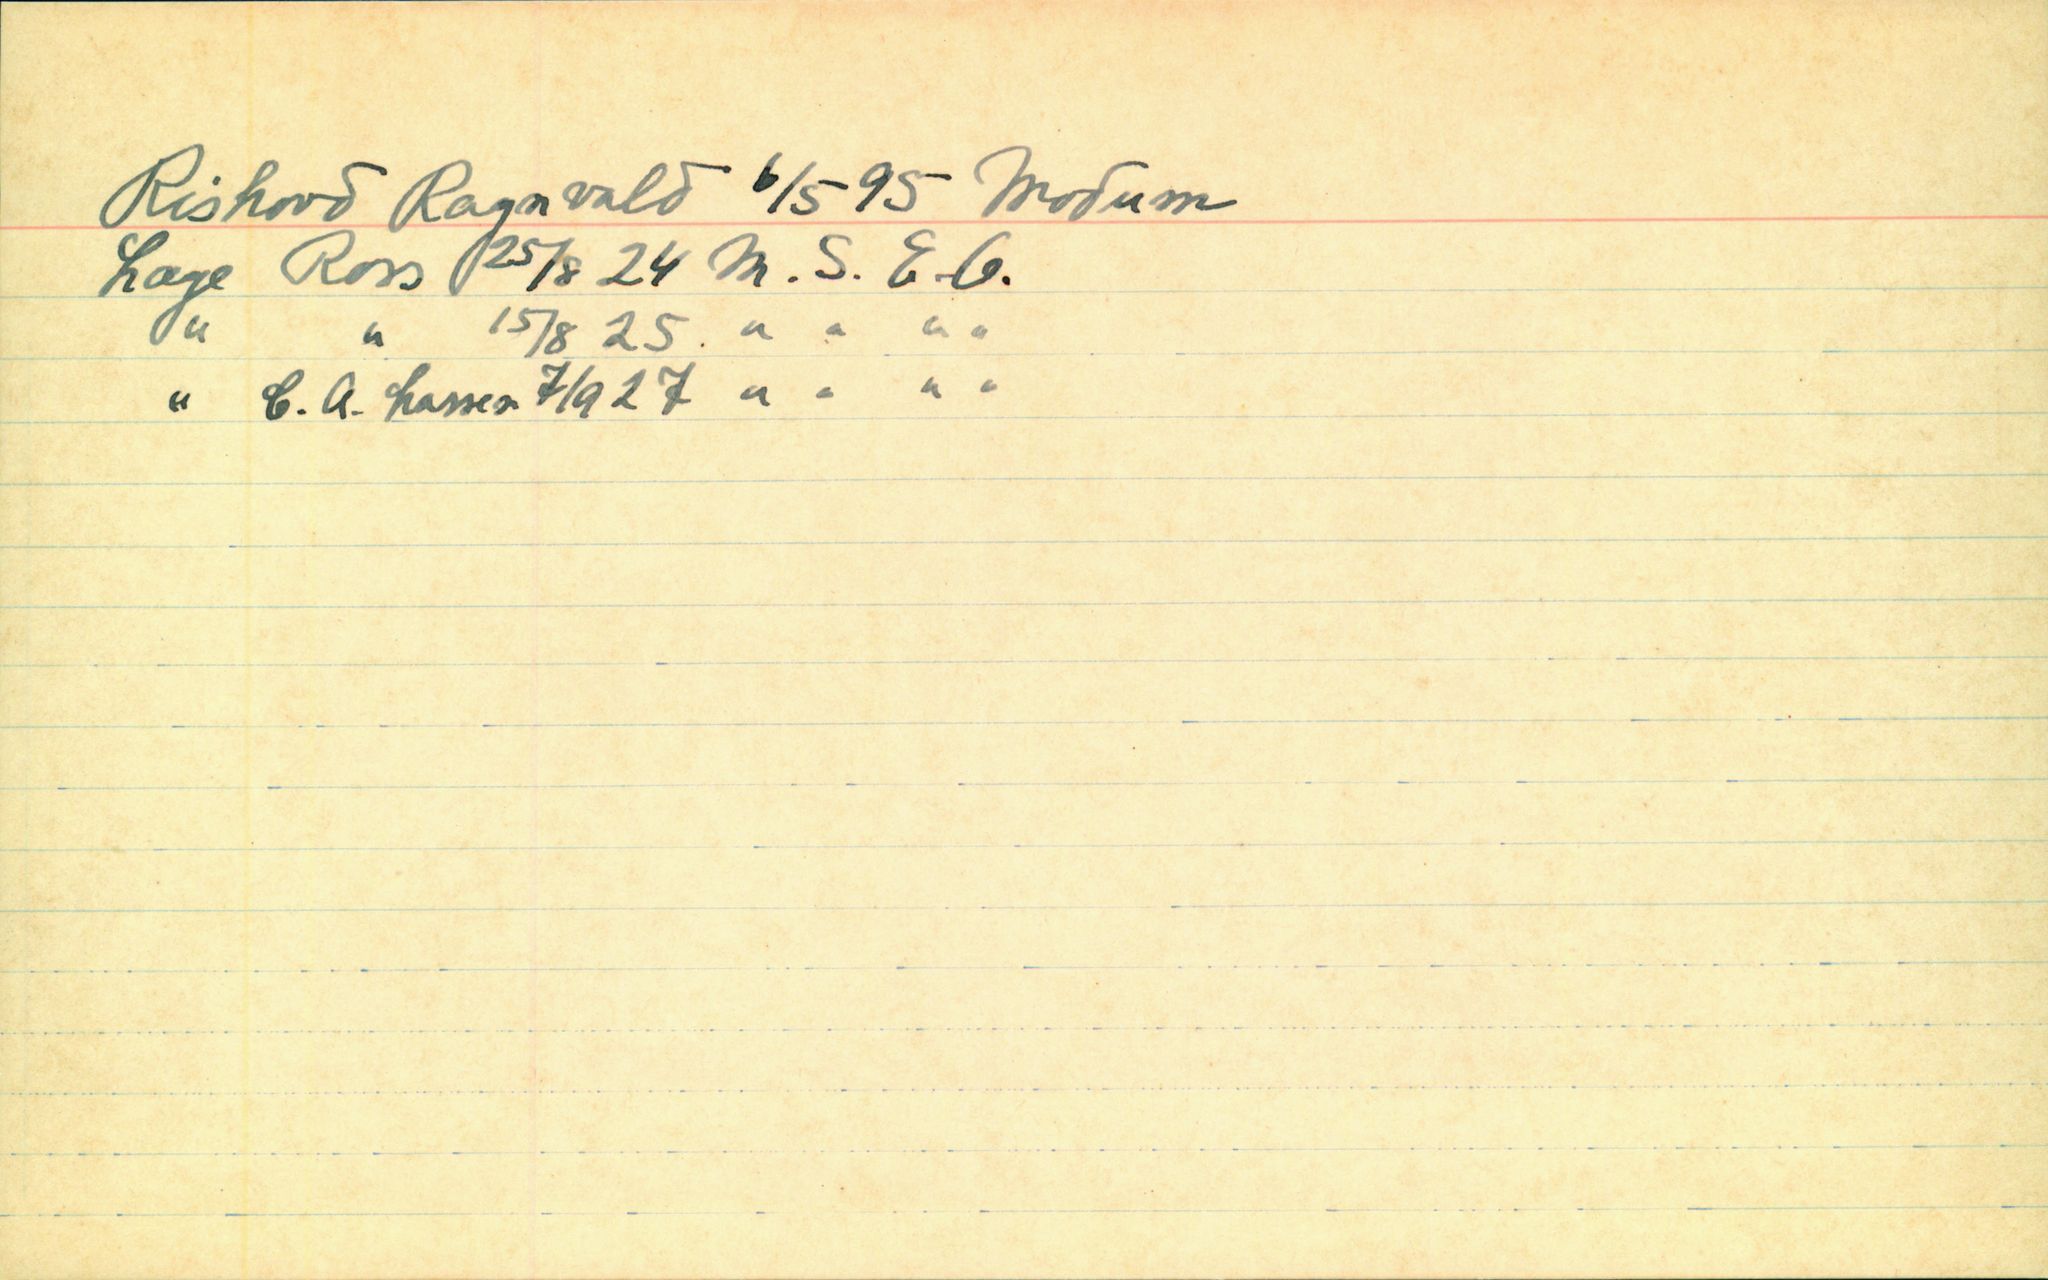 Rishovd Ragnvald 6/5 95 Modum
Læge Ross 25/8 24 M. S. E. C.
" " 15/8 25. " " " "
" C. A. Larsen 7/9 27 " " " "